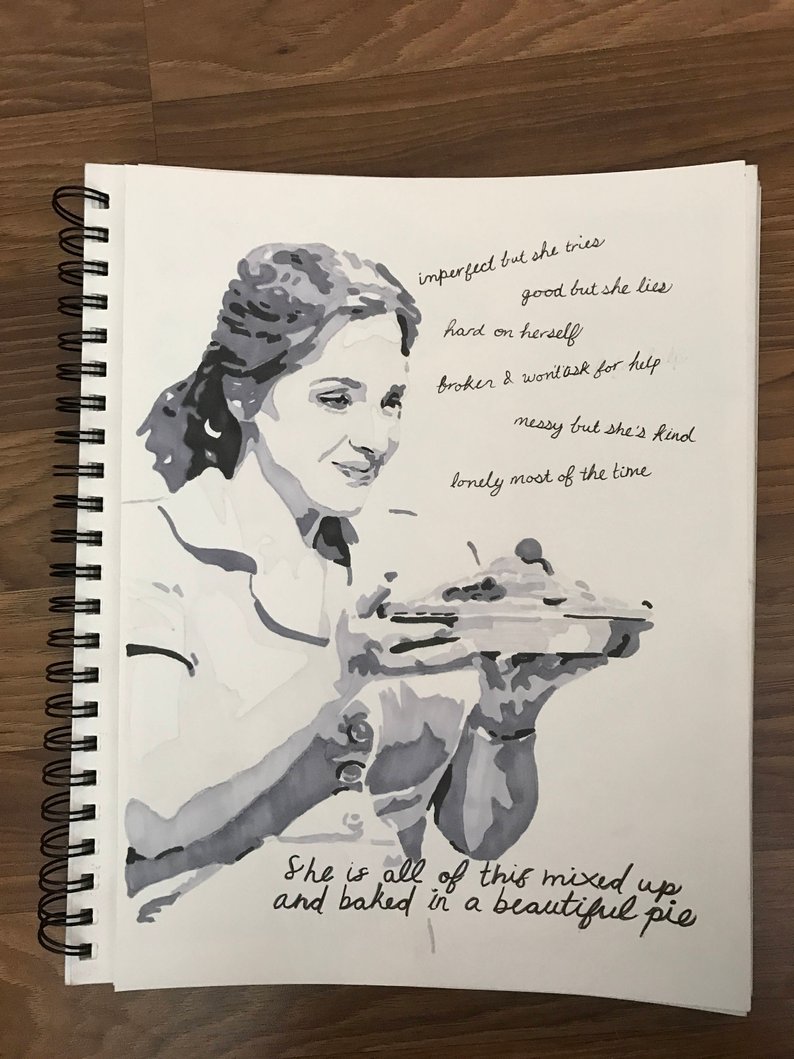 imperfect but she tries
good but she lies
hard on herself
broken & won't ask for help
messy but she's kind
lonely most of the time
She is all of this mixed up
and baked in a beautiful pie